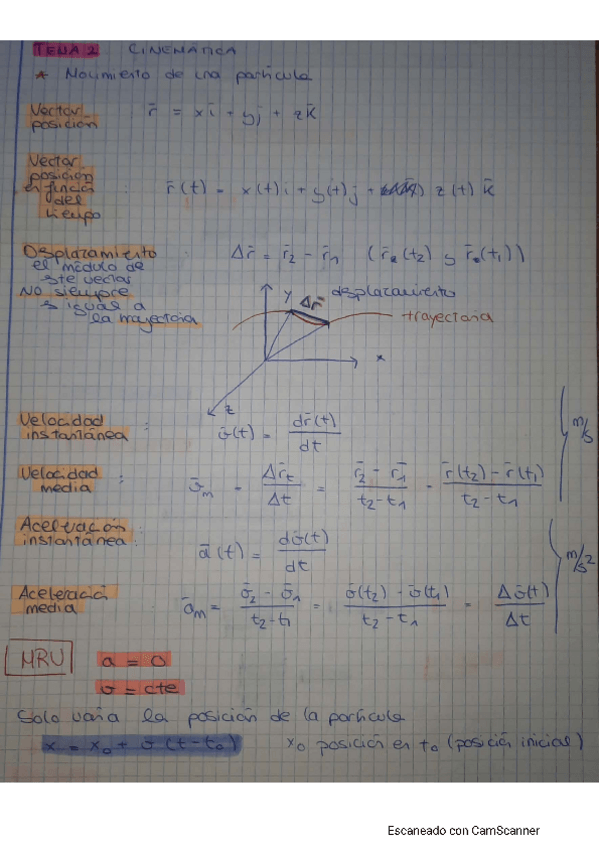 TEMA 2 CINEMÁTICA
* Movimiento de una partícula
Vector posición r̄ = xī + yj̄ + zk̄
Vector
posición
en función
del
tiempo : r̄(t) = x(t)i + y(t)j + z(t) k̄
Desplazamiento : Δr̄ = r̄2 - r̄1 (r̄2(t2) y r̄1(t1))
el módulo de
este vector
NO siempre
es igual a
la trayectoria
y Δr̄ desplazamiento
trayectoria
x
z
Velocidad instantánea : v̄(t) = dr̄(t)/dt
Velocidad media : v̄m = Δr̄t/Δt = (r̄2 - r̄1)/(t2 - t1) = (r̄(t2) - r̄(t1))/(t2 - t1)
m/s
Aceleración instantánea : ā(t) = dv̄(t)/dt
Aceleración media : ām = (v̄2 - v̄1)/(t2 - t1) = (v̄(t2) - v̄(t1))/(t2 - t1) = Δv̄(t)/Δt
m/s2
MRU a = 0
v = cte
Solo varía la posición de la partícula
x = x0 + v (t - t0) x0 posición en t0 (posición inicial)
Escaneado con CamScanner